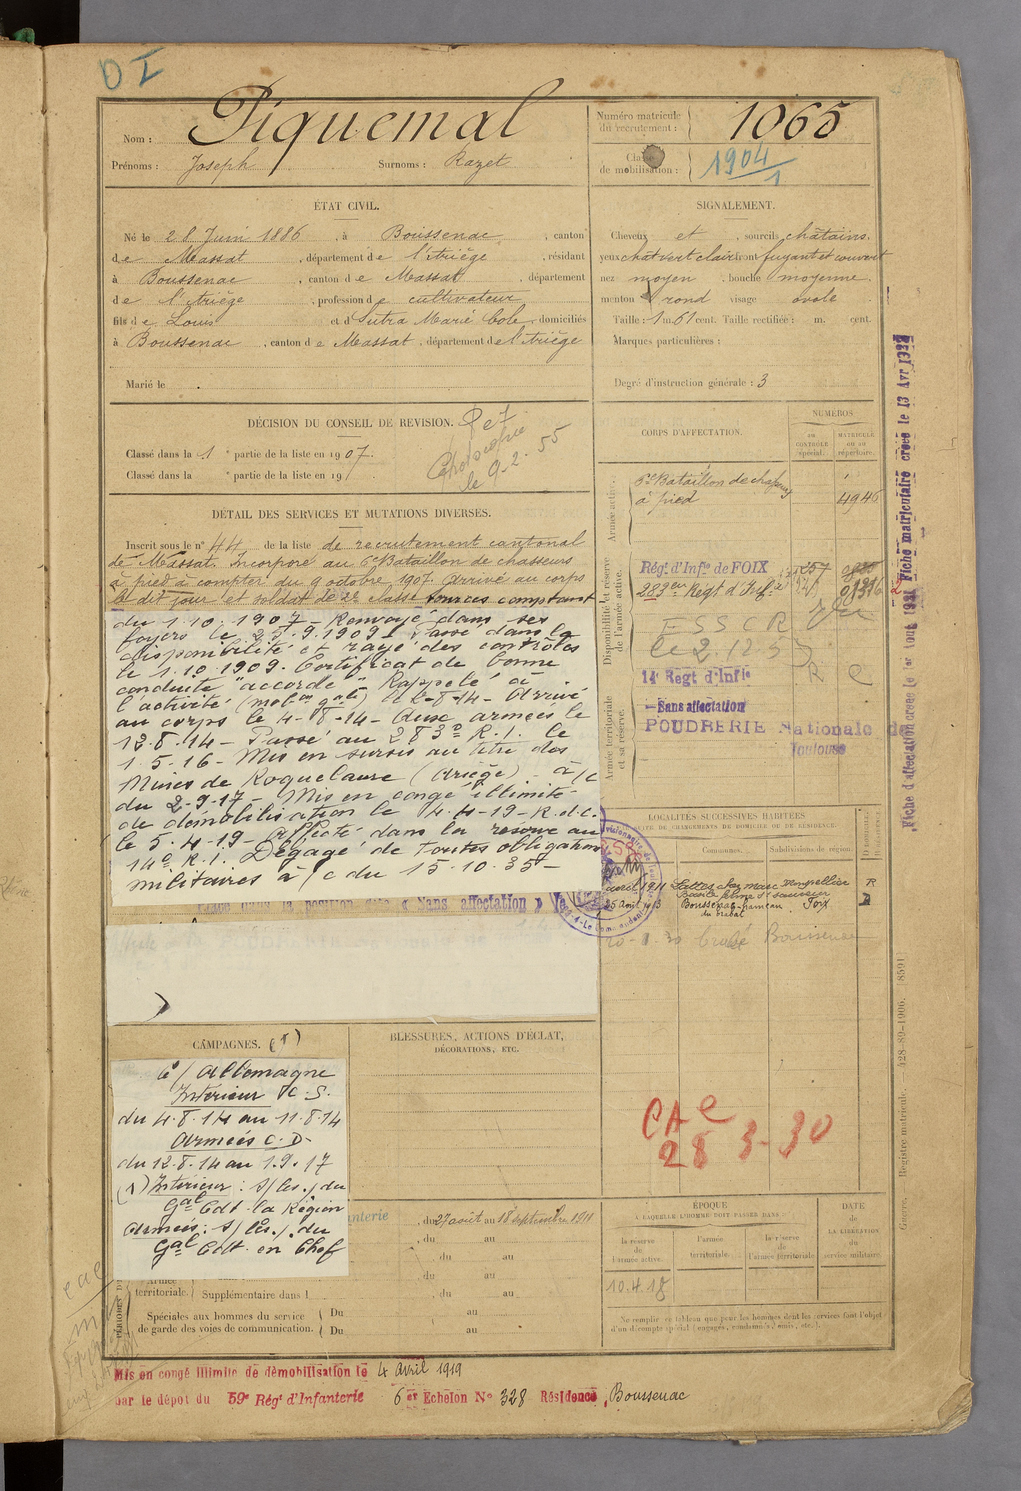 D I
Nom : Piquemal
Prénoms : Joseph Surnoms : Razet
Numéro matricule du recrutement : 1065
Classe de mobilisation : 1904/1
ÉTAT CIVIL.
Né le 28 Juin 1886, à Boussenac, canton
de Massat, département de l'Ariège, résidant
à Boussenac, canton de Massat, département
de l'Ariège, profession de cultivateur
fils de Louis et d Sutra Marie Cole, domiciliés
à Boussenac, canton de Massat, département de l'Ariège
Marié le
SIGNALEMENT.
Cheveux et sourcils châtains.
yeux chat vert clair front fuyant et couvert
nez moyen bouche moyenne
menton rond visage ovale
Taille : 1 m. 61 cent. Taille rectifiée : m. cent.
Marques particulières :
Degré d'instruction générale : 3
DÉCISION DU CONSEIL DE REVISION.
Classé dans la 1 e partie de la liste en 1907.
Classé dans la e partie de la liste en 19
le 9-2-55
DÉTAIL DES SERVICES ET MUTATIONS DIVERSES.
Inscrit sous le n° 44 de la liste de recrutement cantonal
de Massat. Incorporé au 6e Bataillon de chasseurs
à pied à compter du 9 octobre 1907. Arrivé au corps
le dit jour et soldat de 2e classe services comptant
du 1.10.1907 - Renvoyé dans ses
foyers le 25.9.1909. Passé dans la
disponibilité et rayé des contrôles
le 1.10.1909. Certificat de bonne
conduite "accordé" - Rappelé à
l'activité (mobon gale) le 2-8-14 - Arrivé
au corps le 4-8-14 - Aux armées le
12.8.14 - Passé au 283e R.I. le
1.5.16 - Mis en sursis au titre des
Mines de Roquelaure (Ariège) - à/c
du 2-9-17 - Mis en congé illimité
de démobilisation le 4-4-19 - R.d.C.
le 5.4.19 - Affecté dans la réserve au
14e R.I. Dégagé de toutes obligations
militaires à/c du 15.10.35 -
dans la position dite « Sans affectation » le
CORPS D'AFFECTATION.
NUMÉROS
AU CONTRÔLE spécial.
MATRICULE ou au répertoire.
Armée active.
6e Bataillon de chasseurs
à pied 4946
Disponibilité et réserve de l'armée active.
Régt d'Infie de FOIX
283eme Regt d'Infie
le 2.12.5
14e Regt d'Infie
Armée territoriale et sa réserve.
- Sans affectation
POUDRERIE Nationale de
Toulouse
LOCALITÉS SUCCESSIVES HABITÉES
PAR SUITE DE CHANGEMENTS DE DOMICILE OU DE RÉSIDENCE.
Communes. Subdivisions de région.
avril 1911 Lattes Montpellier R
25 avril 1913 Boussenac hameau Foix D
du brabat
Boussenac
CAMPAGNES. (1)
c/ Allemagne
Intérieur C.S.
du 4.8.14 au 11.8.14
Armées C.D.
du 12.8.14 au 1.9.17
(1) Intérieur : s/les./ du
Gal Cdt la Région
Armées : s/les./ du
Gal Cdt en Chef
BLESSURES, ACTIONS D'ÉCLAT,
DÉCORATIONS, ETC.
CAe
28 3-30
anterie, du 27 août au 18 septembre 1911
, du au
, du au
, du au
Armée territoriale. Supplémentaire dans l , du au
Spéciales aux hommes du service Du au
de garde des voies de communication. Du au
ÉPOQUE
À LAQUELLE L'HOMME DOIT PASSER DANS :
la réserve de l'armée active. l'armée territoriale. la réserve de l'armée territoriale.
DATE de LA LIBÉRATION du service militaire.
10.4.18
Ne remplir ce tableau que pour les hommes dont les services font l'objet
d'un décompte spécial (engagés, condamnés, omis, etc.).
Mis en congé illimité de démobilisation le 4 avril 1919
par le dépôt du 59e Régt d'Infanterie 6er Echelon N° 328 Résidence, Boussenac
Registre matricule. 428-89-1906. [8591]